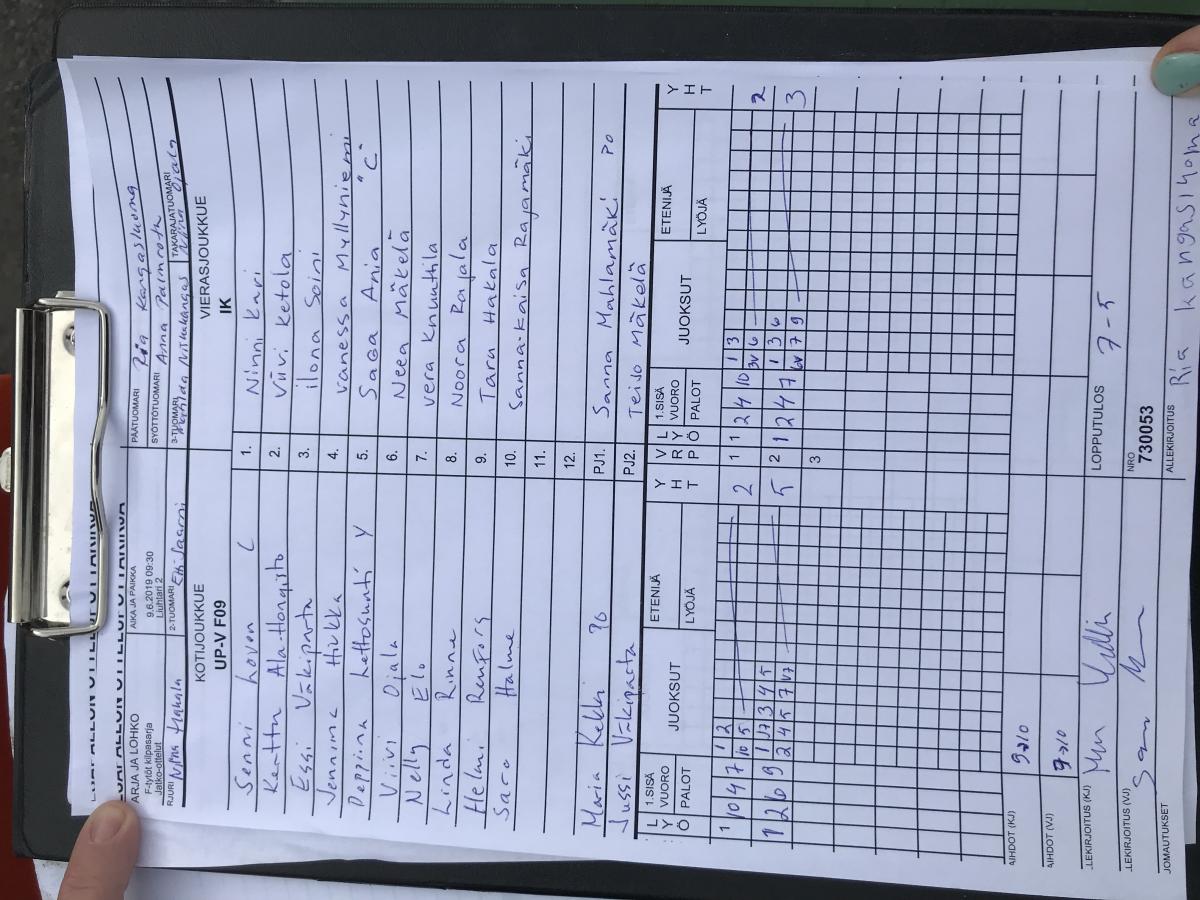 PÄÄTUOMARI Ria Kangasluoma
ARJA JA LOHKO AIKA JA PAIKKA SYÖTTÖTUOMARI Anna
F-tytöt kilpasarja 9.6.2019 09:30
Jatko-ottelut Liuhtari 2
2-TUOMARI 3-TUOMARI TAKARAJATUOMARI
RJURI Hakala Matilda Niina Ojala
KOTIJOUKKUE VIERASJOUKKUE
UP-V F09 IK
Senni Loven C 1. Ninni Kari
Kerttu Ala-Hongisto 2. Viivi Ketola
Essi Väkiparta 3. ilona Soini
Jemmima Hiukka 4. vanessa Myllyniemi
Peppiina Lettosunti Y 5. Saga Ania "C"
Viivi Ojala 6. Neea Mäkelä
Nelly Elo 7. vera Knuuttila
Linda Rinne 8. Noora Rajala
Helmi Renfors 9. Taru Hakala
Saro Halme 10. Sanna-Kaisa Rajamäki
11.
12.
Maria Kekki PO PJ1. Sanna Mahlamäki PO
Jussi Väkiparta PJ2. Teijo Mäkelä
L Y Ö 1.SISÄ VUORO PALOT JUOKSUT ETENIJÄ LYÖJÄ Y H T V R P L Y Ö 1.SISÄ VUORO PALOT JUOKSUT ETENIJÄ LYÖJÄ Y H T
1 2 1 3
1 10 4 7 10 5 2 1 1 2 4 10 3v 6 2
1 17 3 4 5 1 3 6
1 2 6 9 2 4 5 7 v7 5 2 1 2 4 7 6v 7 9 3
3
AIHDOT (KJ) 9>10
AIHDOT (VJ) 9>10
LLEKIRJOITUS (KJ) LOPPUTULOS 7-5
LLEKIRJOITUS (VJ) NRO 730053
JOMAUTUKSET ALLEKIRJOITUS Ria Kangasluoma